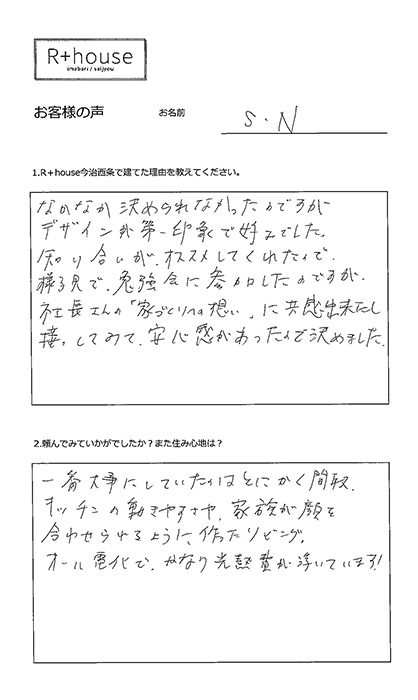 R+house
imabari / saijyou
お客様の声 お名前 S・N
1.R+house今治西条で建てた理由を教えてください。
なかなか決められなかったのですが
デザインが第一印象で好みでした。
知り合いが、オススメしてくれたので、
様子見で、勉強会に参加したのですが、
社長さんの「家づくりへの想い」に共感出来たし
接してみて、安心感があったので決めました。
2.頼んでみていかがでしたか？また住み心地は？
一番大事にしていたのはとにかく間取。
キッチンの動きやすさや、家族が顔を
合わせられるように、作ったリビング。
オール電化で、かなり光熱費が浮いています!